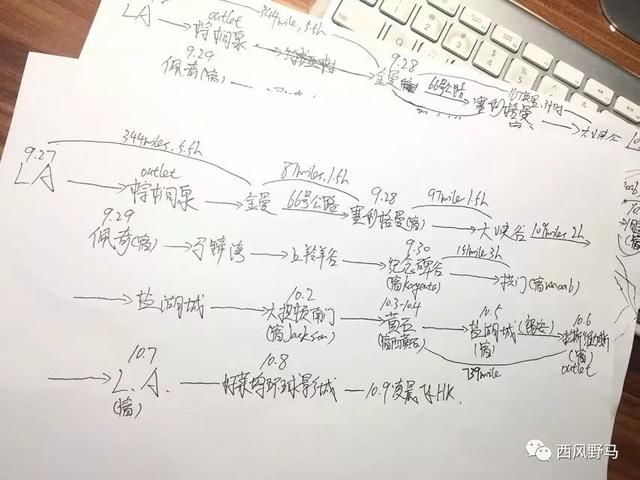 LA
outlet
棕榈泉
344mile, 5.5h
金曼
66号公路
9.28
塞利格曼
大峡谷
9.29
佩奇(宿)
9.27
344miles, 5.5h
LA
outlet
棕榈泉
金曼
87miles, 1.5h
66号公路
9.28
塞利格曼(宿)
97mile 1.5h
大峡谷
109mile, 2h
9.29
佩奇(宿)
马蹄湾
上羚羊谷
9.30
纪念碑谷
(宿kayenta)
151mile 3h
拱门(宿moab)
盐湖城
10.2
大提顿南门
(宿Jackson)
10.3-10.4
黄石
(宿西黄石)
10.5
盐湖城
(宿)
10.6
拉斯维加斯
(宿)
outlet
739mile
10.7
L.A.
(宿)
10.8
好莱坞环球影城
10.9凌晨飞HK.
西风野马